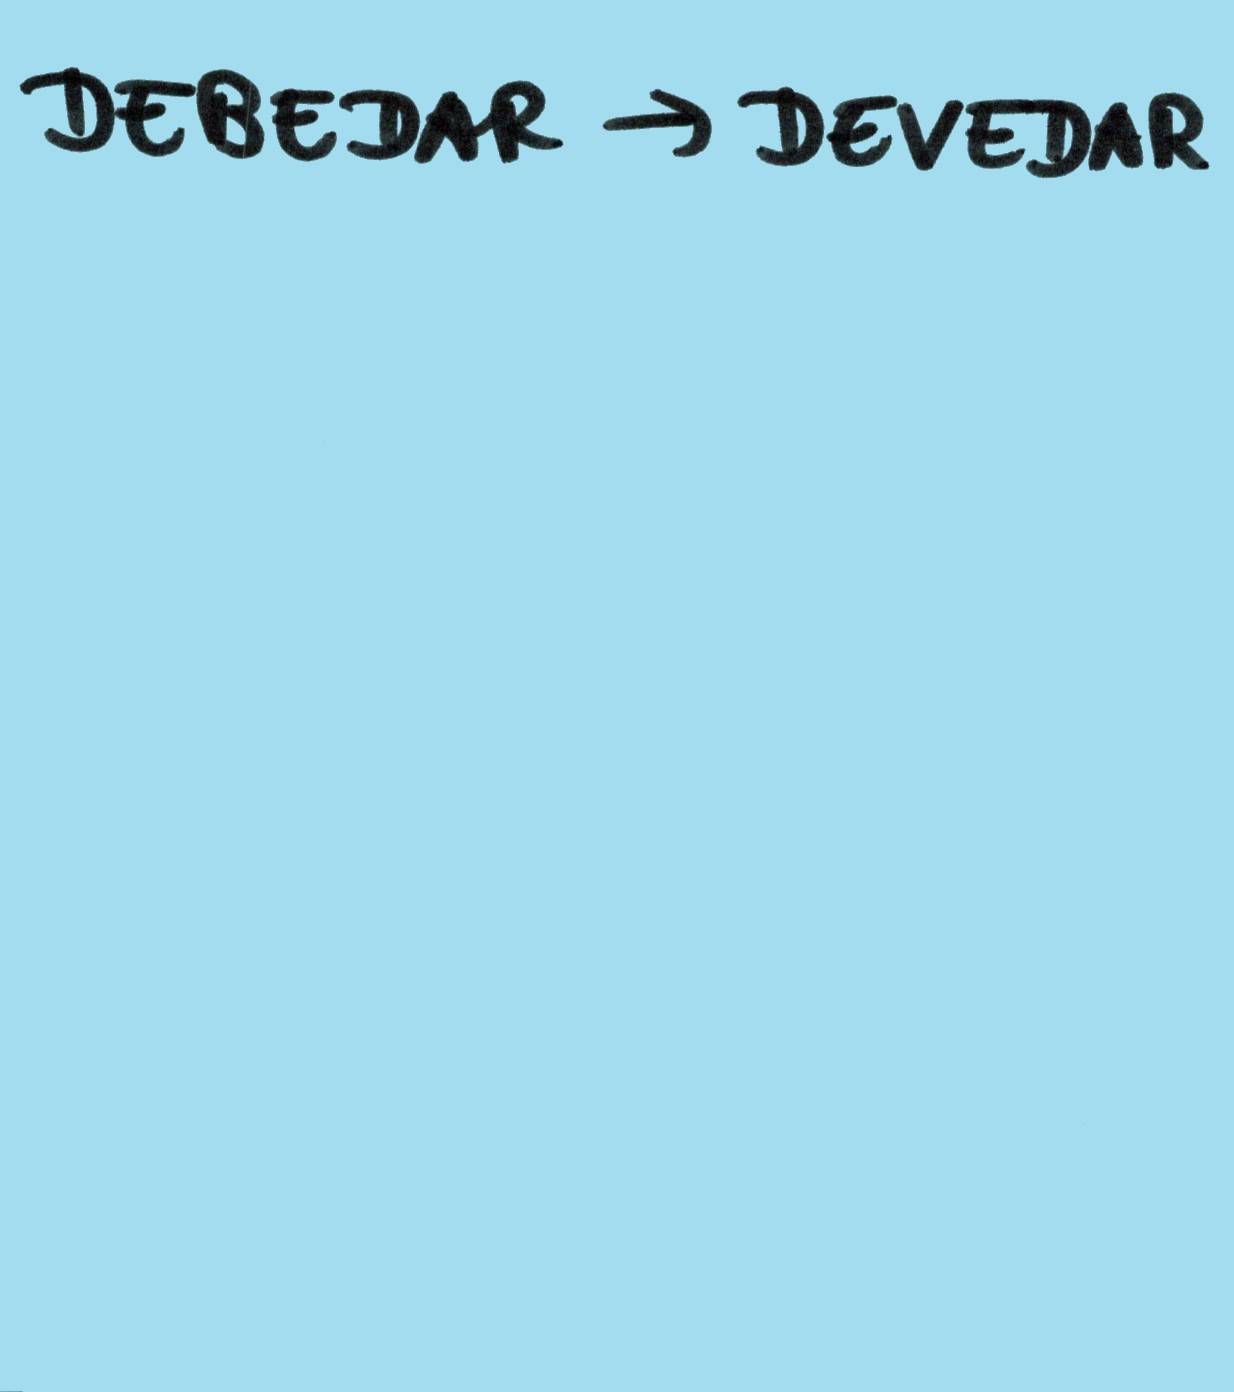 DEBEDAR → DEVEDAR